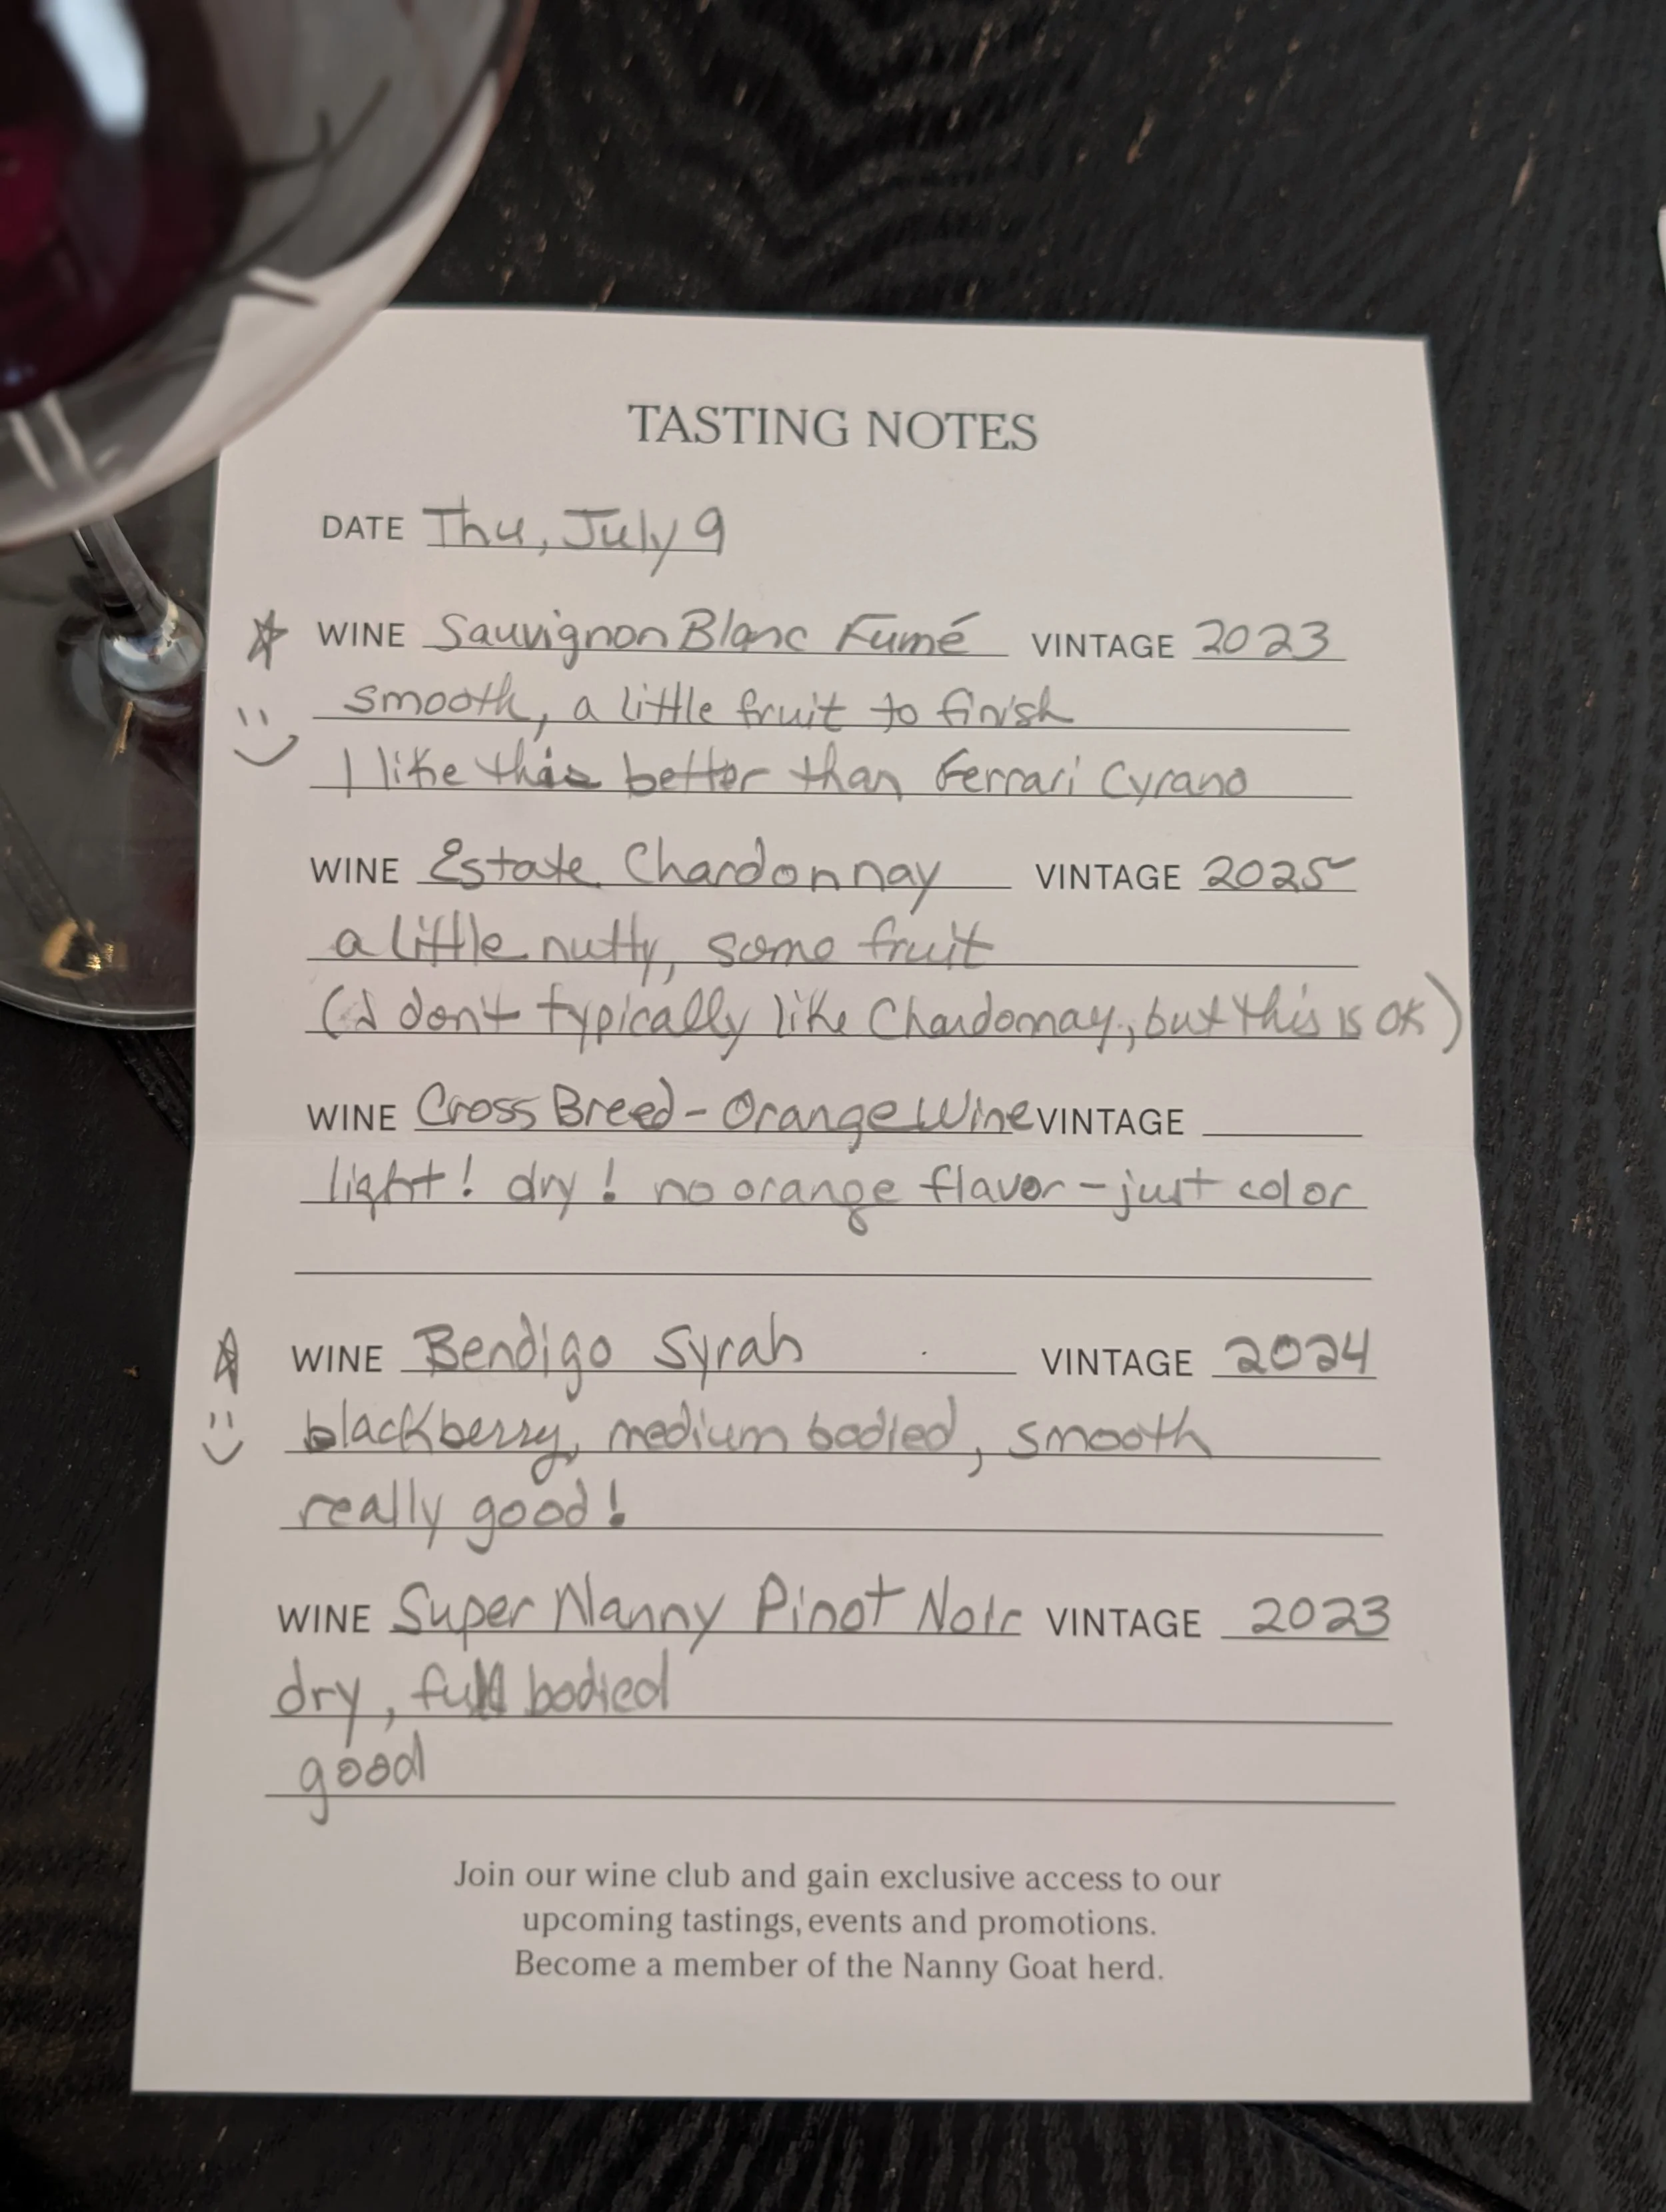 TASTING NOTES
DATE Thu, July 9
WINE Sauvignon Blanc Fumé VINTAGE 2023
smooth, a little fruit to finish
I like this better than Ferrari Cyrano
WINE Estate Chardonnay VINTAGE 2025
a little nutty, some fruit
(I don't typically like Chardonnay, but this is OK)
WINE Cross Breed - Orange Wine VINTAGE
light! dry! no orange flavor - just color
WINE Bendigo Syrah VINTAGE 2024
blackberry, medium bodied, smooth
really good!
WINE Super Nanny Pinot Noir VINTAGE 2023
dry, full bodied
good
Join our wine club and gain exclusive access to our
upcoming tastings, events and promotions.
Become a member of the Nanny Goat herd.